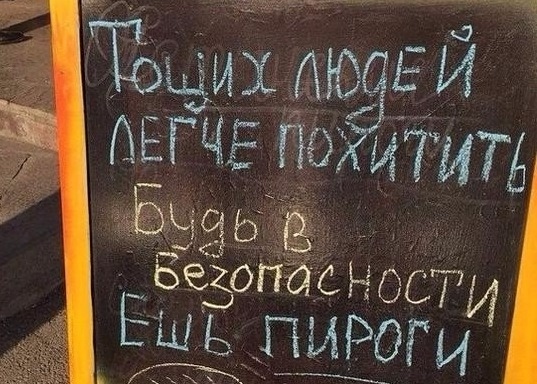 Тощих людей
легче похитить
Будь в
безопасности
Ешь пироги